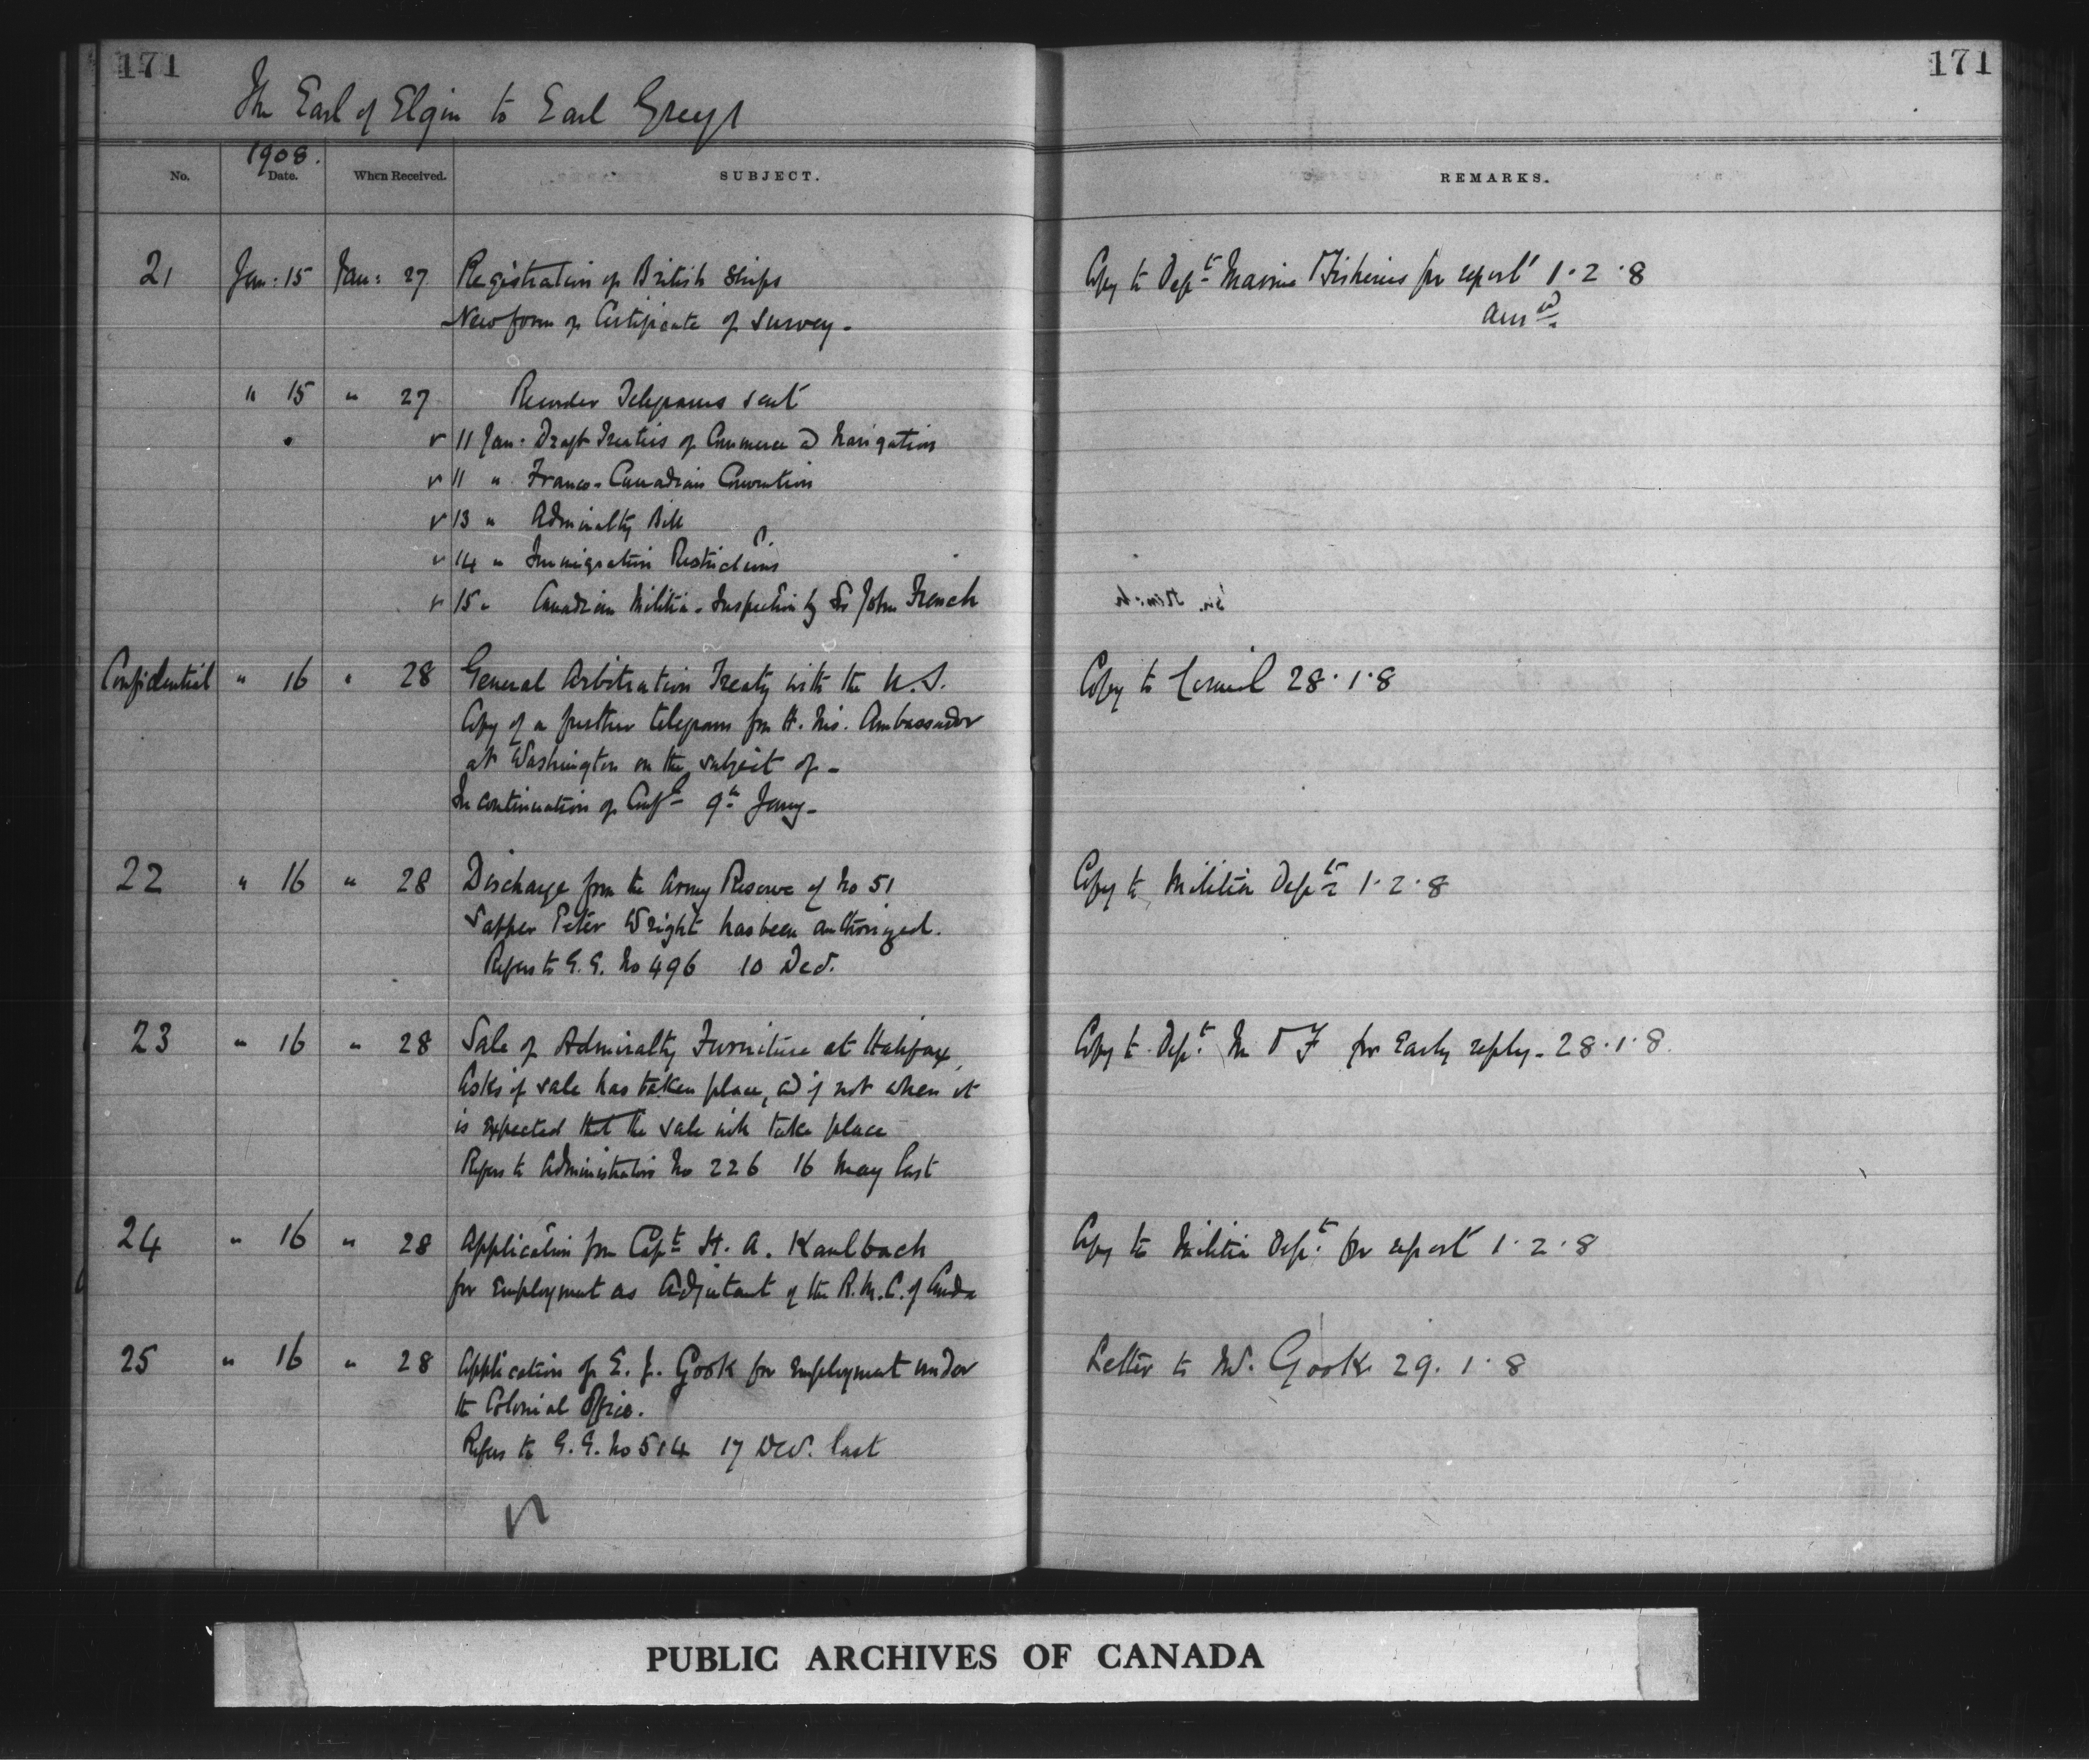 171
171
The Earl of Elgin to Earl Grey
1908.
No. Date. When Received. SUBJECT. REMARKS.
21 Jan: 15 Jan: 27 Registration of British Ships Copy to Dept Marine & Fisheries for report 1.2.8
New form of Certificate of Survey - Ansd.
" 15 " 27 Recorder Telegrams sent
✓ 11 Jan: Draft Treaties of Commerce & Navigation
✓ 11 " Franco-Canadian Convention
✓ 13 " Admiralty Bill
✓ 14 " Immigration Restrictions
✓ 15 " Canadian Militia - Inspection by Sir John French
Confidential " 16 " 28 General Arbitration Treaty with the U.S. Copy to Council 28.1.8
Copy of a further telegram from H. Ms. Ambassador
at Washington on the subject of -
In continuation of Confl 9th Jany -
22 " 16 " 28 Discharge from the Army Reserve of No 51 Copy to Militia Dept 1.2.8
Sapper Peter Wright has been authorized.
Refers to G.G. No 496 10 Dec.
23 " 16 " 28 Sale of Admiralty Furniture at Halifax, Copy to Dept. M & F for early reply - 28.1.8.
Asks if sale has taken place, & if not when it
is expected that the sale will take place
Refers to Administrators No 226 16 May last
24 " 16 " 28 Application from Capt H. A. Kaulbach Copy to Militia Dept. for report 1.2.8
for employment as Adjutant of the R.M.C. of Canda
25 " 16 " 28 Application of E. J. Gook for employment under Letter to Mr. Gook 29.1.8
the Colonial Office.
Refers to G.G. No 514 17 Dec. last
PUBLIC ARCHIVES OF CANADA